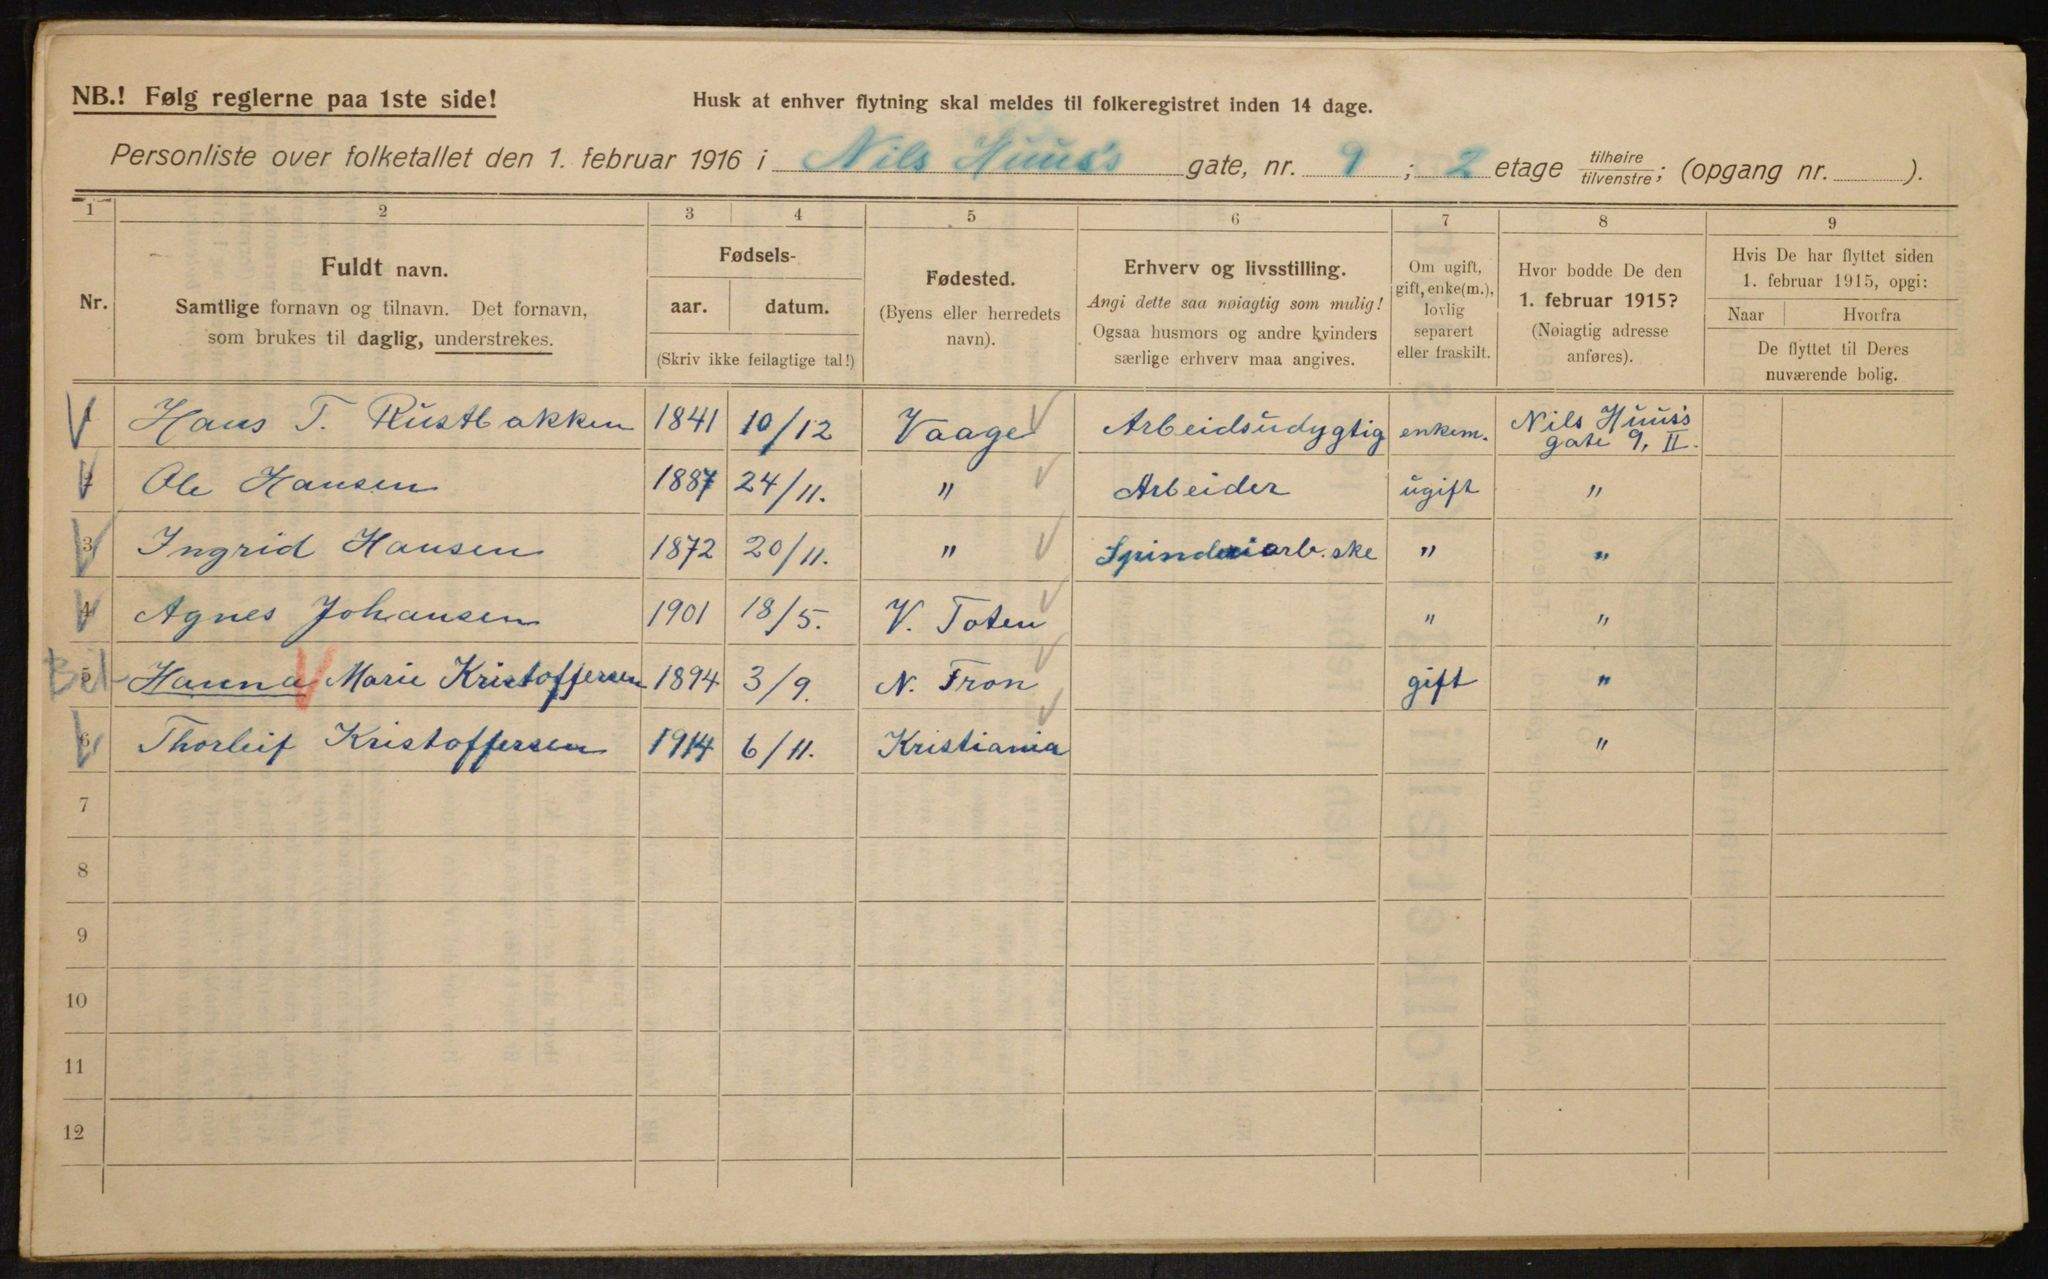 NB.! Følg reglerne paa 1ste side!
Husk at enhver flytning skal meldes til folkeregistret inden 14 dage.
Personliste over folketallet den 1. februar 1916 i Nils Huus's gate, nr. 9 ; 2 etage tilhøire/tilvenstre; (opgang nr. ).
1 2 3 4 5 6 7 8 9
Nr.
Fuldt navn.
Samtlige fornavn og tilnavn. Det fornavn,
som brukes til daglig, understrekes.
Fødsels-
aar. datum.
(Skriv ikke feilagtige tal!)
Fødested.
(Byens eller herredets
navn).
Erhverv og livsstilling.
Angi dette saa nøiagtig som mulig!
Ogsaa husmors og andre kvinders
særlige erhverv maa angives.
Om ugift,
gift, enke(m.),
lovlig
separert
eller fraskilt.
Hvor bodde De den
1. februar 1915?
(Nøiagtig adresse
anføres).
Hvis De har flyttet siden
1. februar 1915, opgi:
Naar Hvorfra
De flyttet til Deres
nuværende bolig.
1 Hans T. Rustbakken 1841 10/12 Vaage Arbeidsudygtig enkem. Nils Huus's gate 9, II.
2 Ole Hansen 1887 24/11. " Arbeider ugift "
3 Ingrid Hansen 1872 20/11. " Spinderiarb.ske " "
4 Agnes Johansen 1901 18/5. V. Toten " "
5 Hanna Marie Kristoffersen 1894 3/9. N. Fron gift "
6 Thorleif Kristoffersen 1914 6/11. Kristiania "
7
8
9
10
11
12